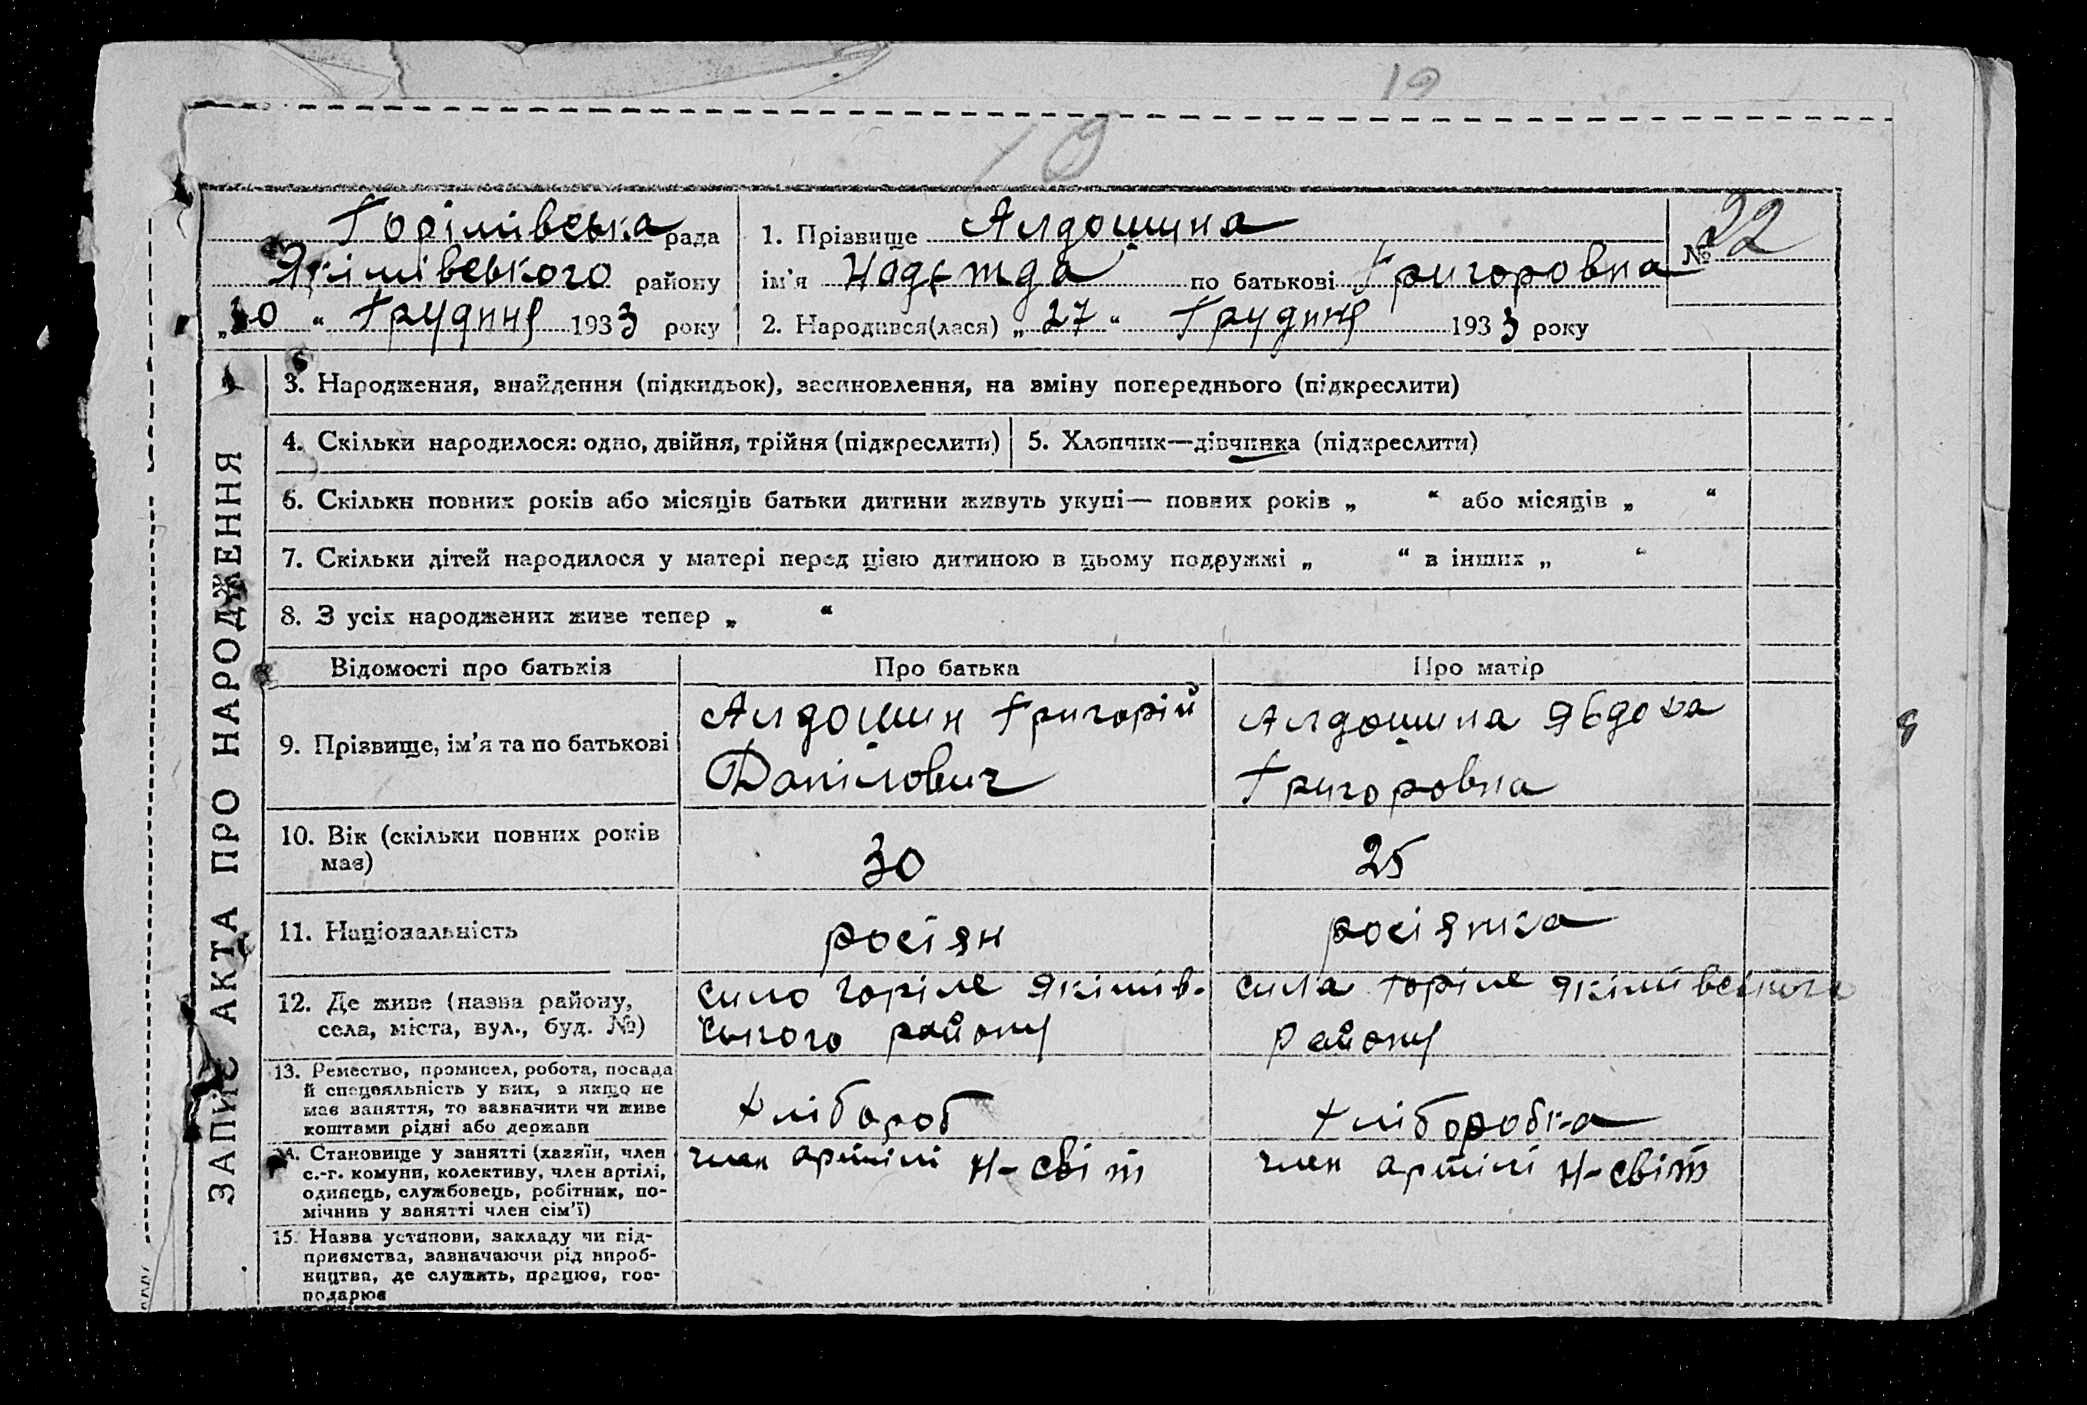 19
10
Горілівська рада
Якімівського району
„30 “ Грудня 1933 року
1. Прізвище Алдошина
ім'я Надежда по батькові Григоровна
№ 22
2. Народився(лася) „ 27 “ Грудня 1933 року
ЗАПИС АКТА ПРО НАРОДЖЕННЯ
3. Народження, знайдення (підкидьок), засиновлення, на зміну попереднього (підкреслити)
4. Скільки народилося: одно, двійня, трійня (підкреслить)
5. Хлопчик—дівчинка (підкреслити)
6. Скільки повних років або місяців батьки дитини живуть укупі— повних років „ “ або місяців „ “
7. Скільки дітей народилося у матері перед цією дитиною в цьому подружжі „ “ в інших „ “
8. З усіх народжених живе тепер „ “
Відомості про батьків
Про батька
Про матір
9. Прізвище, ім'я та по батькові
Алдошин Григорій
Данілович
Алдошина Явдоха
Григоровна
10. Вік (скільки повних років
має)
30
25
11. Національність
росіян
росіянка
12. Де живе (назва району,
села, міста, вул., буд. №)
село Горіле Якімів-
ського району
села Горіле Якімівського
району
13. Ремество, промисел, робота, посада
й спеціяльність у них, а якщо не
має заняття, то зазначити чи живе
коштами рідні або держави
хлібороб
хліборобка
14. Становище у занятті (хазяїн, член
с.-г. комуни, колективу, член артілі,
одинець, службовець, робітник, по-
мічний у занятті член сім'ї)
член артілі Н-світ
член артілі Н-світ
15. Назва установи, закладу чи під-
приємства, зазначаючи рід вироб-
ництва, де служить, працює, гос-
подарює